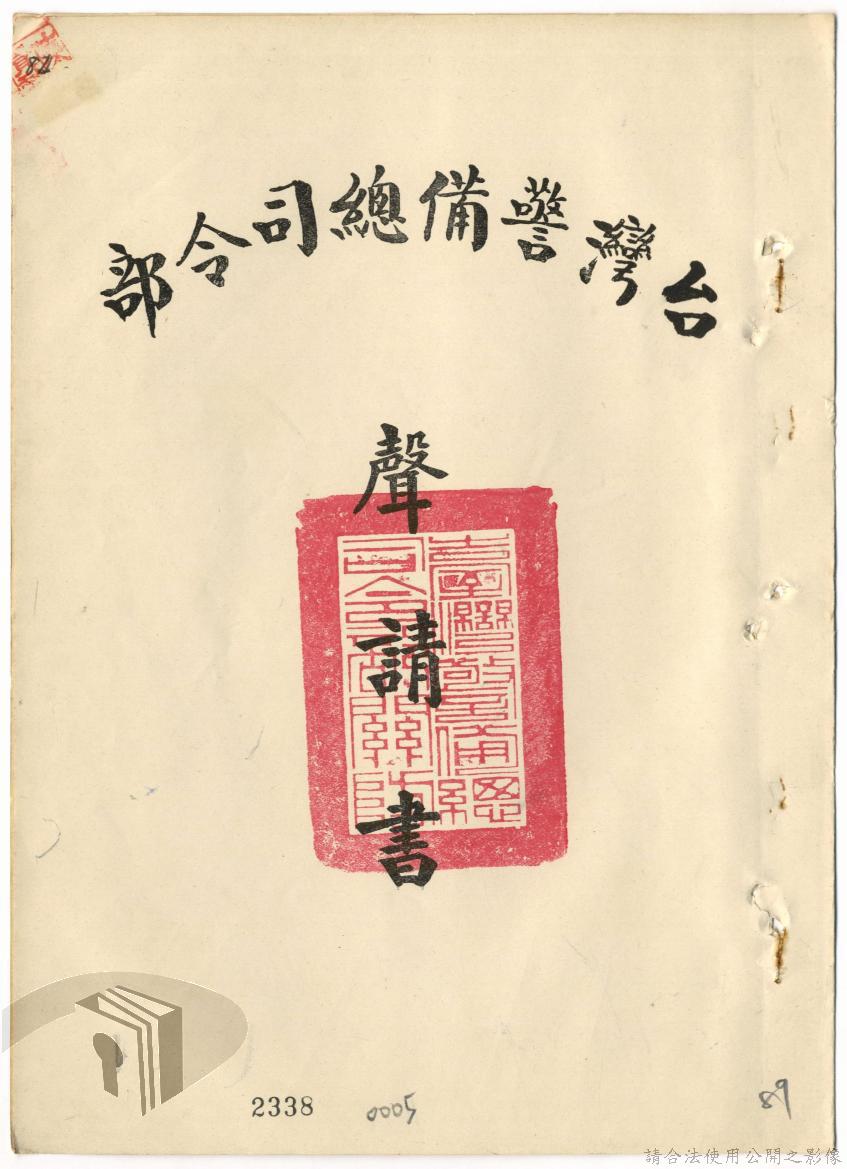 台灣警備總司令部
聲請書
臺灣警備總
司令部關防
2338
0005
89
請合法使用公開之影像